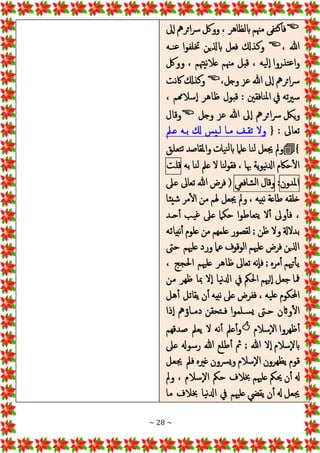 فاكتفى منهم بالظاهر ، ووكل سرائرهم إلى
الله ، وكذلك فعل بالذين تخلفوا عنه
واعتذروا إليه ، قبل منهم علانيتهم ، ووكل
سرائرهم إلى الله عز وجل، وكذلك كانت
سيرته في المنافقين : قبول ظاهر إسلامهم ،
ويكل سرائرهم إلى الله عز وجل وقال
تعالى : { ولا تقف ما ليس لك به علم
} ولم يجعل لنا علما بالنيات والمقاصد تتعلق
الأحكام الدنيوية بها ، فقولنا لا علم لنا به قلت
المدون: وقال الشافعي ( فرض الله تعالى على
خلقه طاعة نبيه ، ولم يجعل لهم من الأمر شيئا
، فأولى ألا يتعاطوا حكما على غيب أحد
بدلالة ولا ظن ; لقصور علمهم من علوم أنبيائه
الذين فرض عليهم الوقوف عما ورد عليهم حتى
يأتيهم أمره ; فإنه تعالى ظاهر عليهم الحجج ،
فما جعل إليهم الحكم في الدنيا إلا بما ظهر من
المحكوم عليه ، ففرض على نبيه أن يقاتل أهل
الأوثان حتى يسلموا فتحقن دماؤهم إذا
أظهروا الإسلام وأعلم أنه لا يعلم صدقهم
بالإسلام إلا الله ; ثم أطلع الله رسوله على
قوم يظهرون الإسلام ويسرون غيره فلم يجعل
له أن يحكم عليهم بخلاف حكم الإسلام ، ولم
يجعل له أن يقضي عليهم في الدنيا بخلاف ما
~ 28 ~